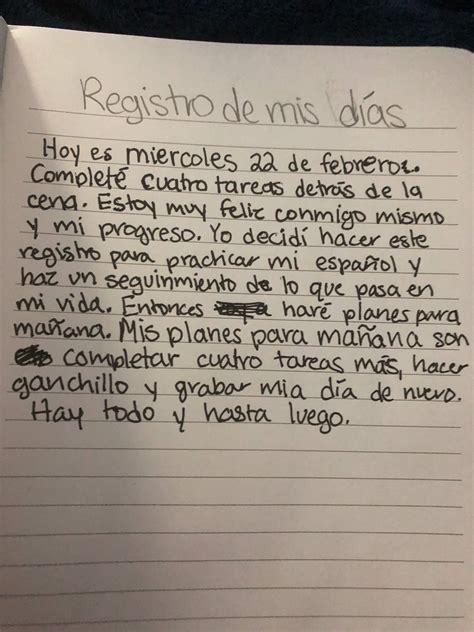 Registro de mis días
Hoy es miercoles 22 de febrero.
Completé cuatro tareas detrás de la
cena. Estoy muy feliz conmigo mismo
y mi progreso. Yo decidí hacer este
registro para practicar mi español y
haz un seguinmiento de lo que pasa en
mi vida. Entonces haré planes para
mañana. Mis planes para mañana son
completar cuatro tareas más, hacer
ganchillo y grabar mia día de nuevo.
Hay todo y hasta luego.